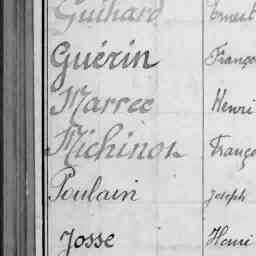 Guihard Ernest
Guérin Franço
Marrec Henri
Michinot Franço
Poulain Joseph
Josse Henri